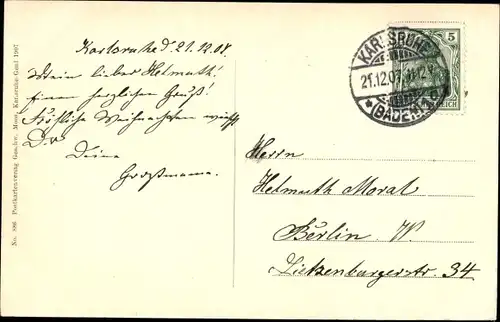 Karlsruhe d. 21.12.07.
Mein lieber Helmuth!
Einen herzlichen Gruß!
Fröhliche Weihnachten wünscht
Dir
Deine
Großmama.
No. 886 Postkartenverlag Geschw. Moos, Karlsruhe-Gand 1907
5
KARLSRUHE
21.12.07
*(BADEN)
REICH
Herrn
Helmuth Moral
Berlin. W.
Lietzenburgerstr. 34